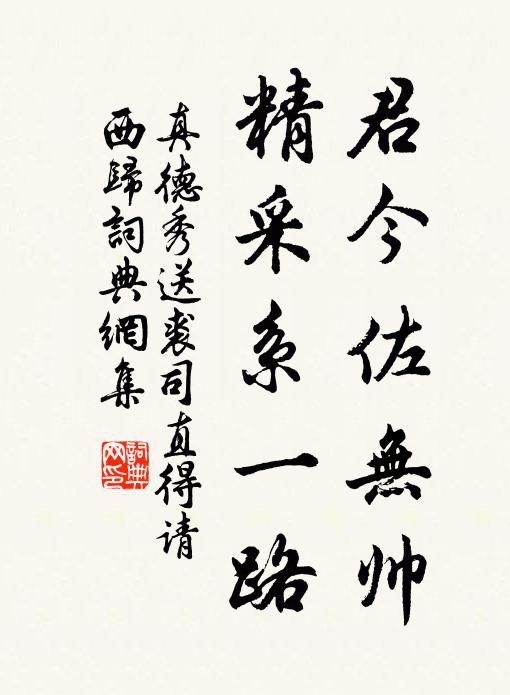 君今佐無帅
精采系一路
真德秀送裘司直得请
西歸詞典網集
詞典
网印